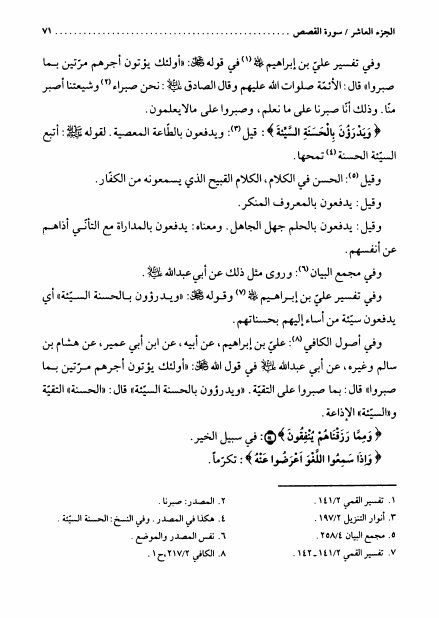 الجزء العاشر / سورة القصص ........................................ ٧١
وفي تفسير عليّ بن إبراهيم ﷫(١) في قوله ﷻ: «أولئك يؤتون أجرهم مرّتين بما
صبروا» قال: الأئمّة صلوات الله عليهم وقال الصادق ﷷ: نحن صبراء(٢) وشيعتنا أصبر
منّا. وذلك أنّا صبرنا على ما نعلم، وصبروا على مالايعلمون.
﴿وَيَدْرَؤُنَ بِالْحَسَنَةِ السَّيِّئَةَ﴾: قيل(٣): ويدفعون بالطّاعة المعصية. لقوله ﷺ: أتبع
السيّئة الحسنة(٤) تمحها.
وقيل(٥): الحسن في الكلام، الكلام القبيح الذي يسمعونه من الكفّار.
وقيل: يدفعون بالمعروف المنكر.
وقيل: يدفعون بالحلم جهل الجاهل. ومعناه: يدفعون بالمداراة مع التأنّي أذاهم
عن أنفسهم.
وفي مجمع البيان(٦): وروى مثل ذلك عن أبي عبدالله ﷷ.
وفي تفسير عليّ بن إبراهيم ﷫(٧) وقوله ﷻ: «ويدرؤون بالحسنة السيّئة» أي
يدفعون سيّئة من أساء إليهم بحسناتهم.
وفي أصول الكافي(٨): عليّ بن إبراهيم، عن أبيه، عن ابن أبي عمير، عن هشام بن
سالم وغيره، عن أبي عبدالله ﷷ في قول الله ﷻ: «أولئك يؤتون أجرهم مرّتين بما
صبروا» قال: بما صبروا على التقيّة. «ويدرؤون بالحسنة السيّئة» قال: «الحسنة» التقيّة
و«السيّئة» الإذاعة.
﴿وَمِمَّا رَزَقْنَاهُمْ يُنْفِقُونَ﴾(٥٤): في سبيل الخير.
﴿وَإِذَا سَمِعُوا اللَّغْوَ أَعْرَضُوا عَنْهُ﴾: تكرّماً.
١. تفسير القمي ١٤١/٢. ٢. المصدر: صبرنا.
٣. أنوار التنزيل ١٩٧/٢. ٤. هكذا في المصدر. وفي النسخ: الحسنة السيّئة.
٥. مجمع البيان ٢٥٨/٤. ٦. نفس المصدر والموضع.
٧. تفسير القمي ١٤١/٢ـ١٤٢. ٨. الكافي ٢١٧/٢، ح١.